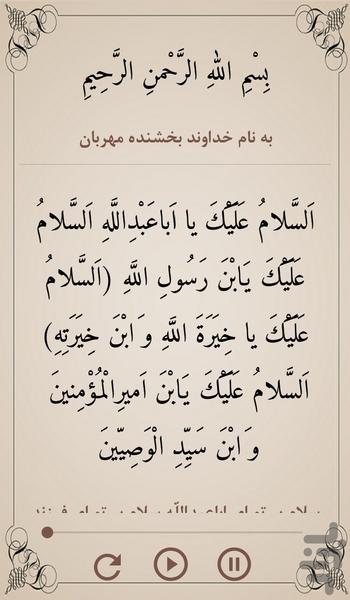 بِسْمِ اللهِ الرَّحْمنِ الرَّحِيمِ
به نام خداوند بخشنده مهربان
اَلسَّلامُ عَلَيْكَ يا اَباعَبْدِاللَّهِ اَلسَّلامُ
عَلَيْكَ يَابْنَ رَسُولِ اللَّهِ (اَلسَّلامُ
عَلَيْكَ يا خِيَرَةَ اللَّهِ وَ ابْنَ خِيَرَتِهِ)
اَلسَّلامُ عَلَيْكَ يَابْنَ اَميرِالْمُؤْمِنينَ
وَ ابْنَ سَيِّدِ الْوَصِيّينَ